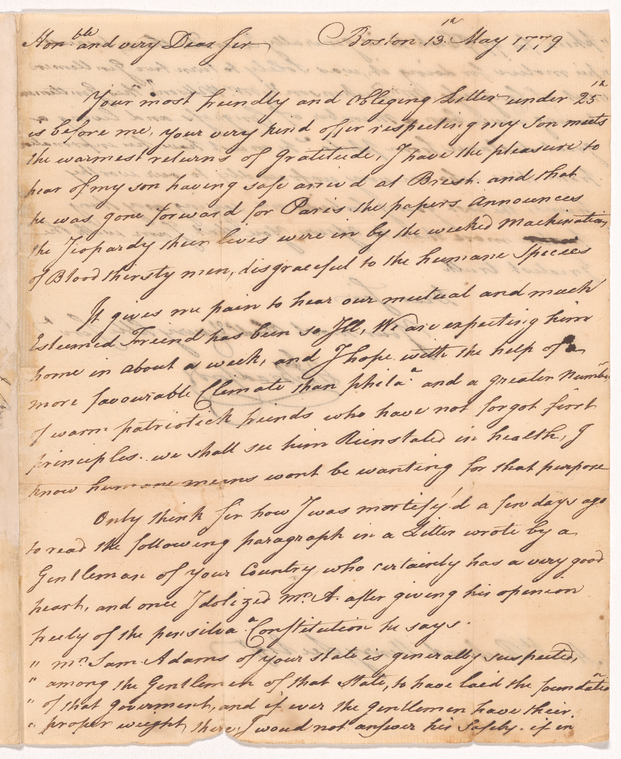 Hon.ble and very Dear Sir Boston 13.th May 1779
Your most friendly and obleging Letter under 25th
is before me, your very kind offer respecting my Son meets
the warmest returns of Gratitude, I have the pleasure to
hear of my son having safe arrivd at Brest. and that
he was gone forward for Paris the papers announces
the Jeopardy their lives were in by the wecked Machinations
of Blood thirsty men, disgraceful to the humane Species
It gives me pain to hear our mutual and much
Esteemed Freend has been so Ill, We are expecting him
home in about a week, and I hope with the help of a
more favourable Climate than phila.a and a greater Number
of warm patriotick freinds who have not forgot first
principles. we shall see him Reinstated in health, I
know humane means wont be wanting for that purpose
Only think Sir how I was mortify'd a few days ago
to read the following paragraph in a Letter wrote by a
Gentleman of your Country who certainly has a very good
heart, and once Idolized Mr. A. after giving his openion
freely of the pensilva.a Constitution he says.
" Mr. Sam Adams of your state is generally suspected,
" among the Gentlemen of that State, to have laed the foundation
" of that Goverment, and if ever the gentlemen have their
" proper weight there, I woud not answer his Safety. if in